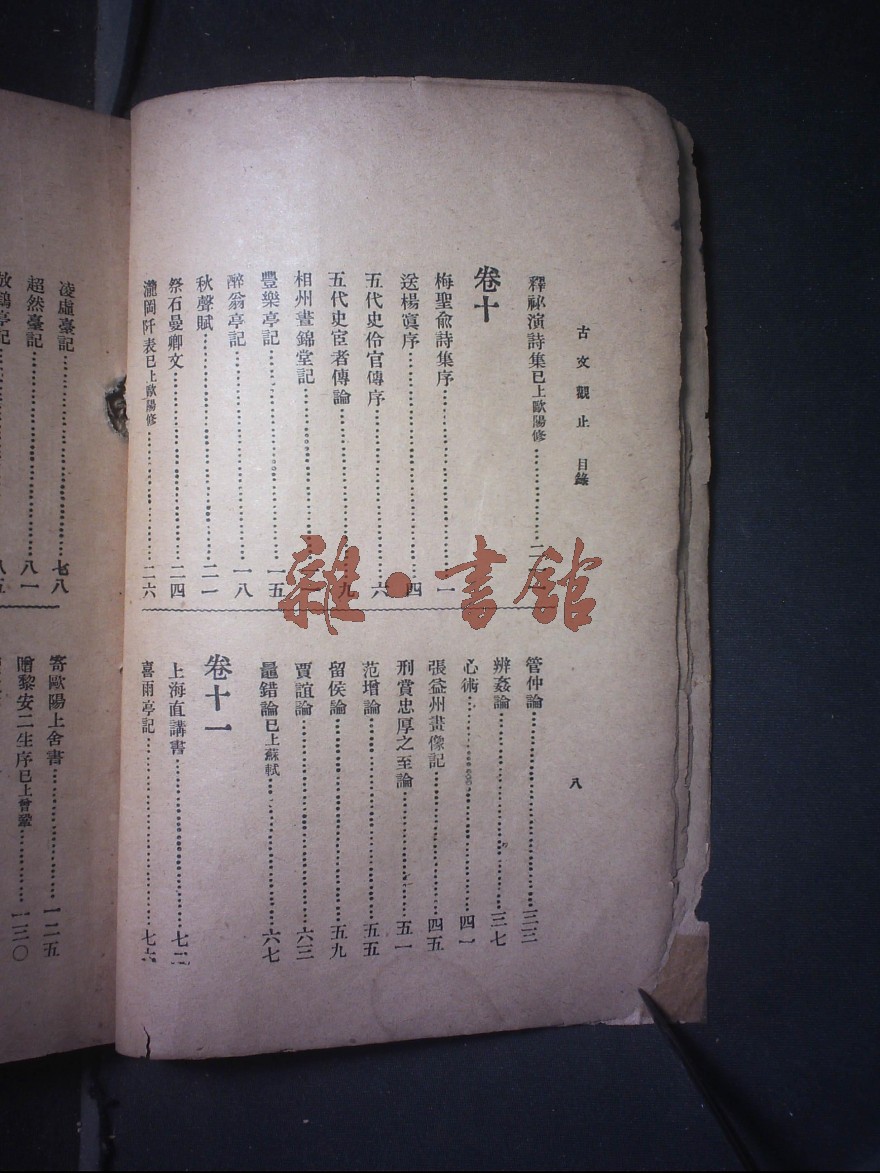 古文觀止 目錄
八
釋祕演詩集已上歐陽修
卷十
梅聖俞詩集序 一
送楊寘序 四
五代史伶官傳序 六
五代史宦者傳論 九
相州晝錦堂記
豐樂亭記 一五
醉翁亭記 一八
秋聲賦 二一
祭石曼卿文 二四
瀧岡阡表已上歐陽修 二六
管仲論 三三
辨姦論 三七
心術 四一
張益州畫像記 四五
刑賞忠厚之至論 五一
范增論 五五
留侯論 五九
賈誼論 六三
鼂錯論已上蘇軾 六七
卷十一
上海直講書 七二
喜雨亭記 七六
凌虛臺記 七八
超然臺記 八一
放鶴亭記 八五
寄歐陽上舍書 一二五
贈黎安二生序已上曾鞏 一三〇
雜·書館